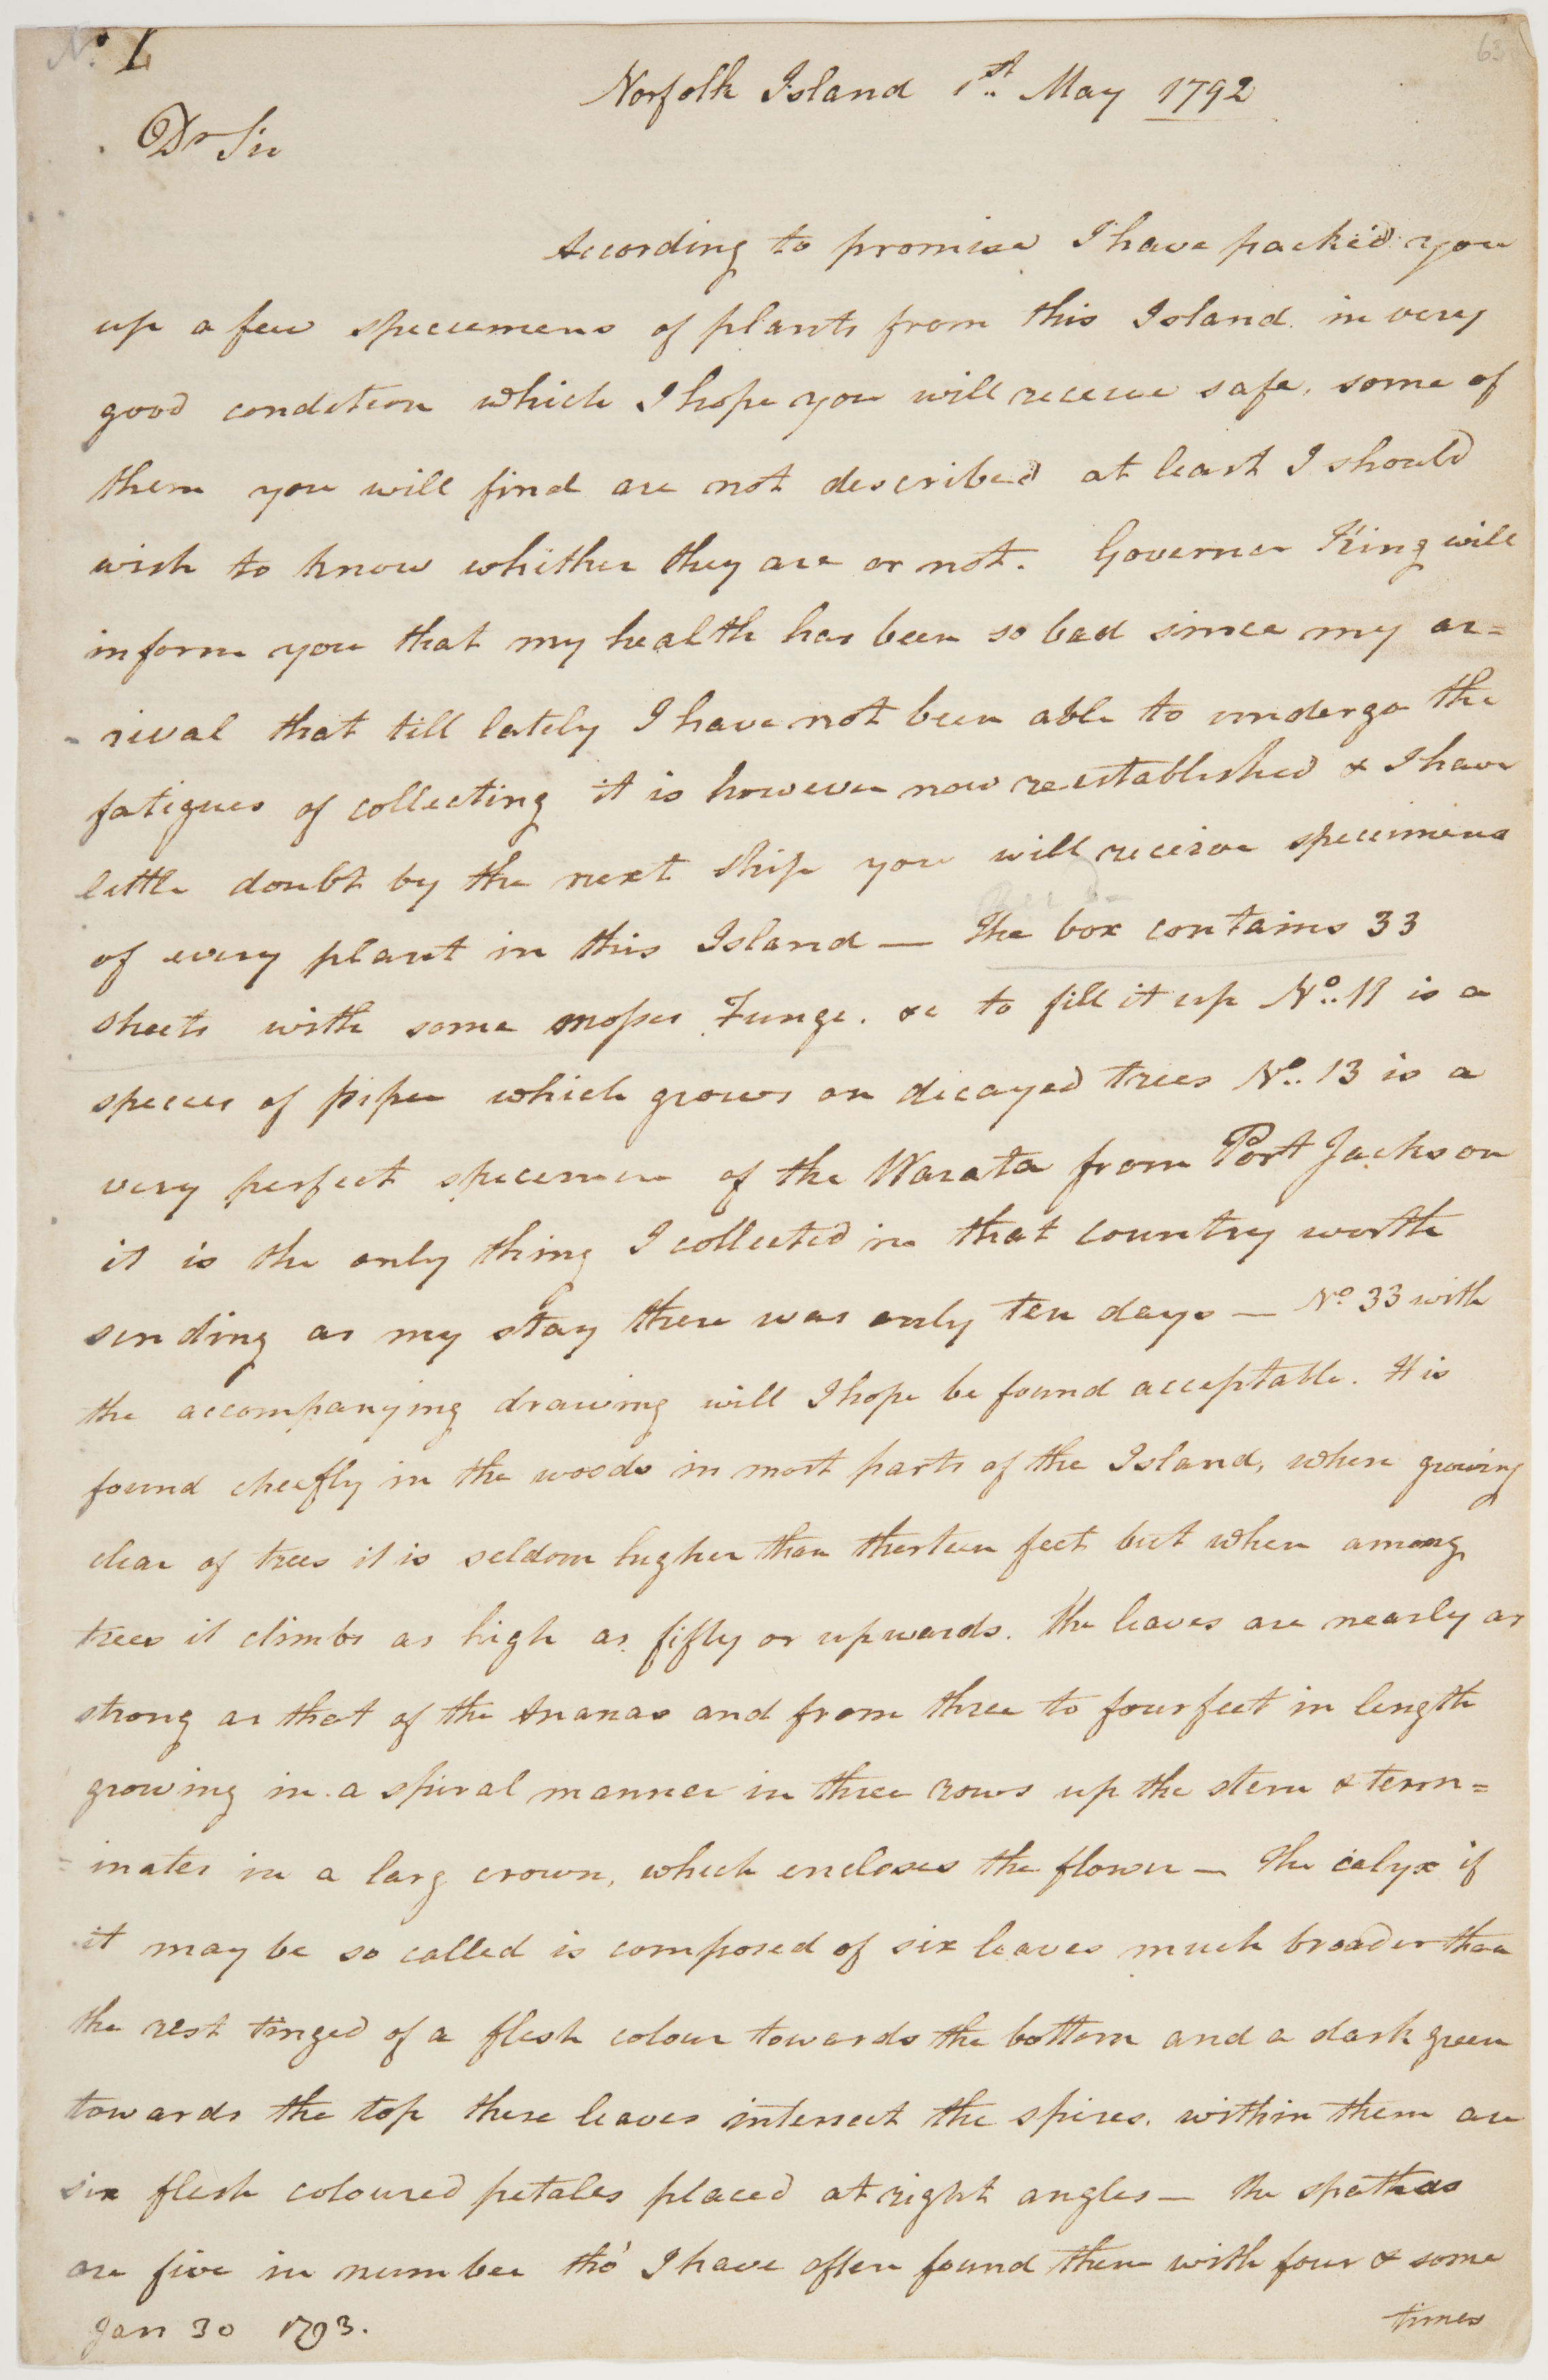 No. 1.
63
Norfolk Island 1st May 1792
Dr Sir
According to promise I have packed you
up a few specemens of plants from this Island in very
good condetion which I hope you will receive safe, some of
them you will find are not described at least I should
wish to know whither they are or not. Governer King will
inform you that my health has been so bad since my ar=
rival that till lately I have not been able to undergo the
fatigues of collecting it is however now reestablished & I have
little doubt by the next ship you will receive specimens
of every plant in this Island — The box contains 33
sheets with some mosses Funge. &c to fill it up No. 11 is a
species of piper which grows on dicayed trees No. 13 is a
very perfect specemen of the Warata from Port Jackson
it is the only thing I collected in that country worth
sending as my stay there was only ten days — No. 33 with
the accompanying drawing will I hope be found acceptable. It is
found cheefly in the woods in most parts of the Island, when growing
clear of trees it is seldom higher than therteen feet but when among
trees it climbs as high as fifty or upwards. The leaves are nearly as
strong as that of the Ananas and from three to four feet in length
growing in a spiral manner in three rows up the stem & term=
=inates in a larg crown, which encloses the flower — The calyx if
it may be so called is composed of six leaves much broader than
the rest tinged of a flesh colour towards the bottom and a dark green
towards the top these leaves intersect the spires. within them are
six flesh coloured petales placed at right angles — the spathas
are five in number tho' I have often found them with four & some
times
Jan 30 1793.